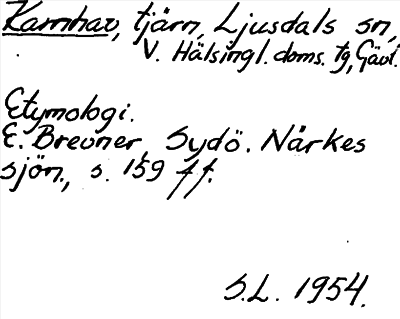 Karnhav, tjärn, Ljusdals sn,
V. Hälsingl. doms. tg, Gävl.
Etymologi.
E. Brevner, Sydö. Närkes
sjön., s. 159 ff.
S.L. 1954.